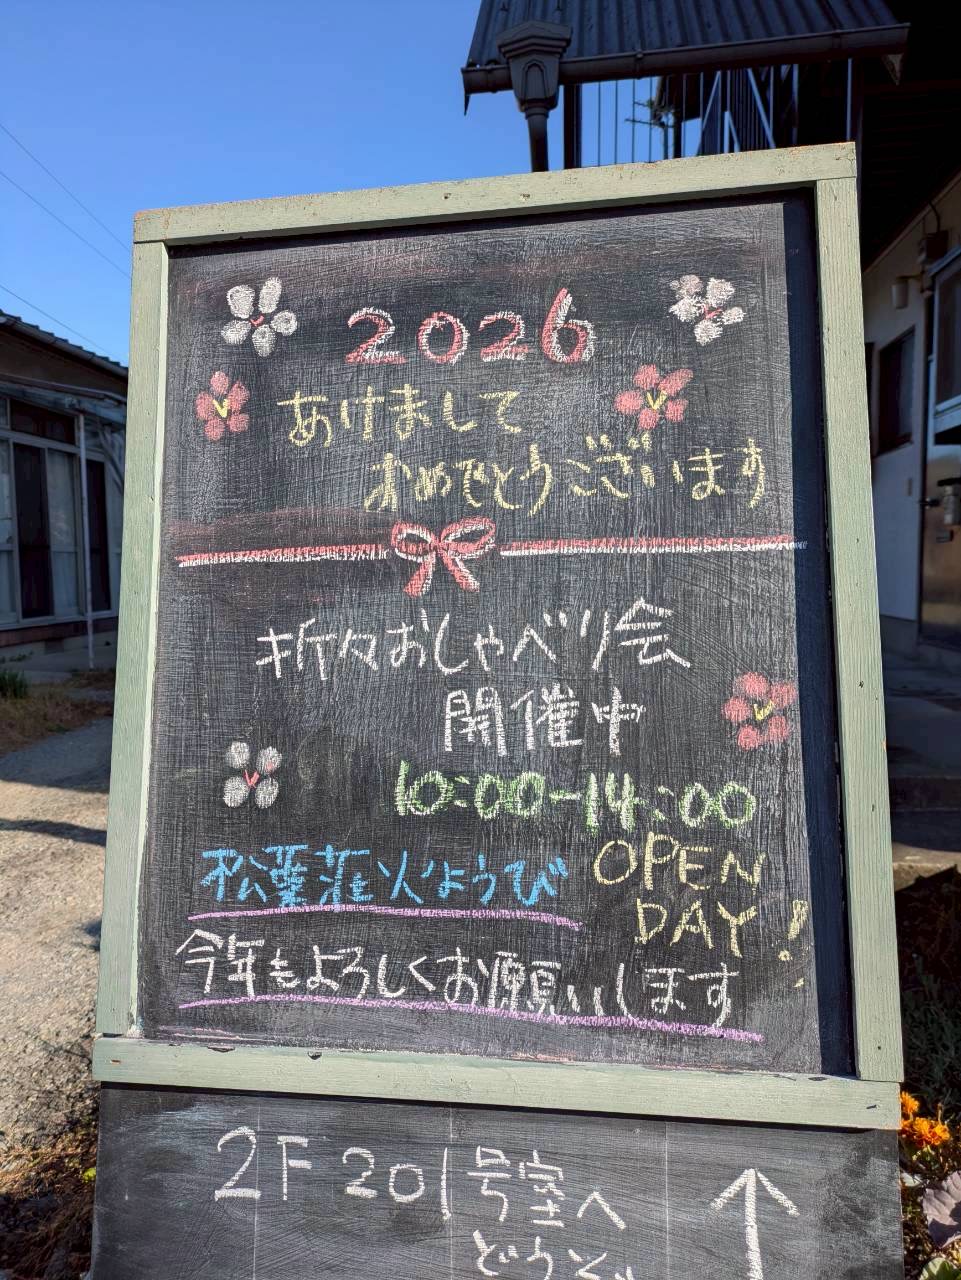 2026
あけまして
おめでとうございます
折々おしゃべり会
開催中
10:00-14:00
松葉荘火ようび
OPEN
DAY!
今年もよろしくお願いします
2F 201号室へ
どうぞ
↑